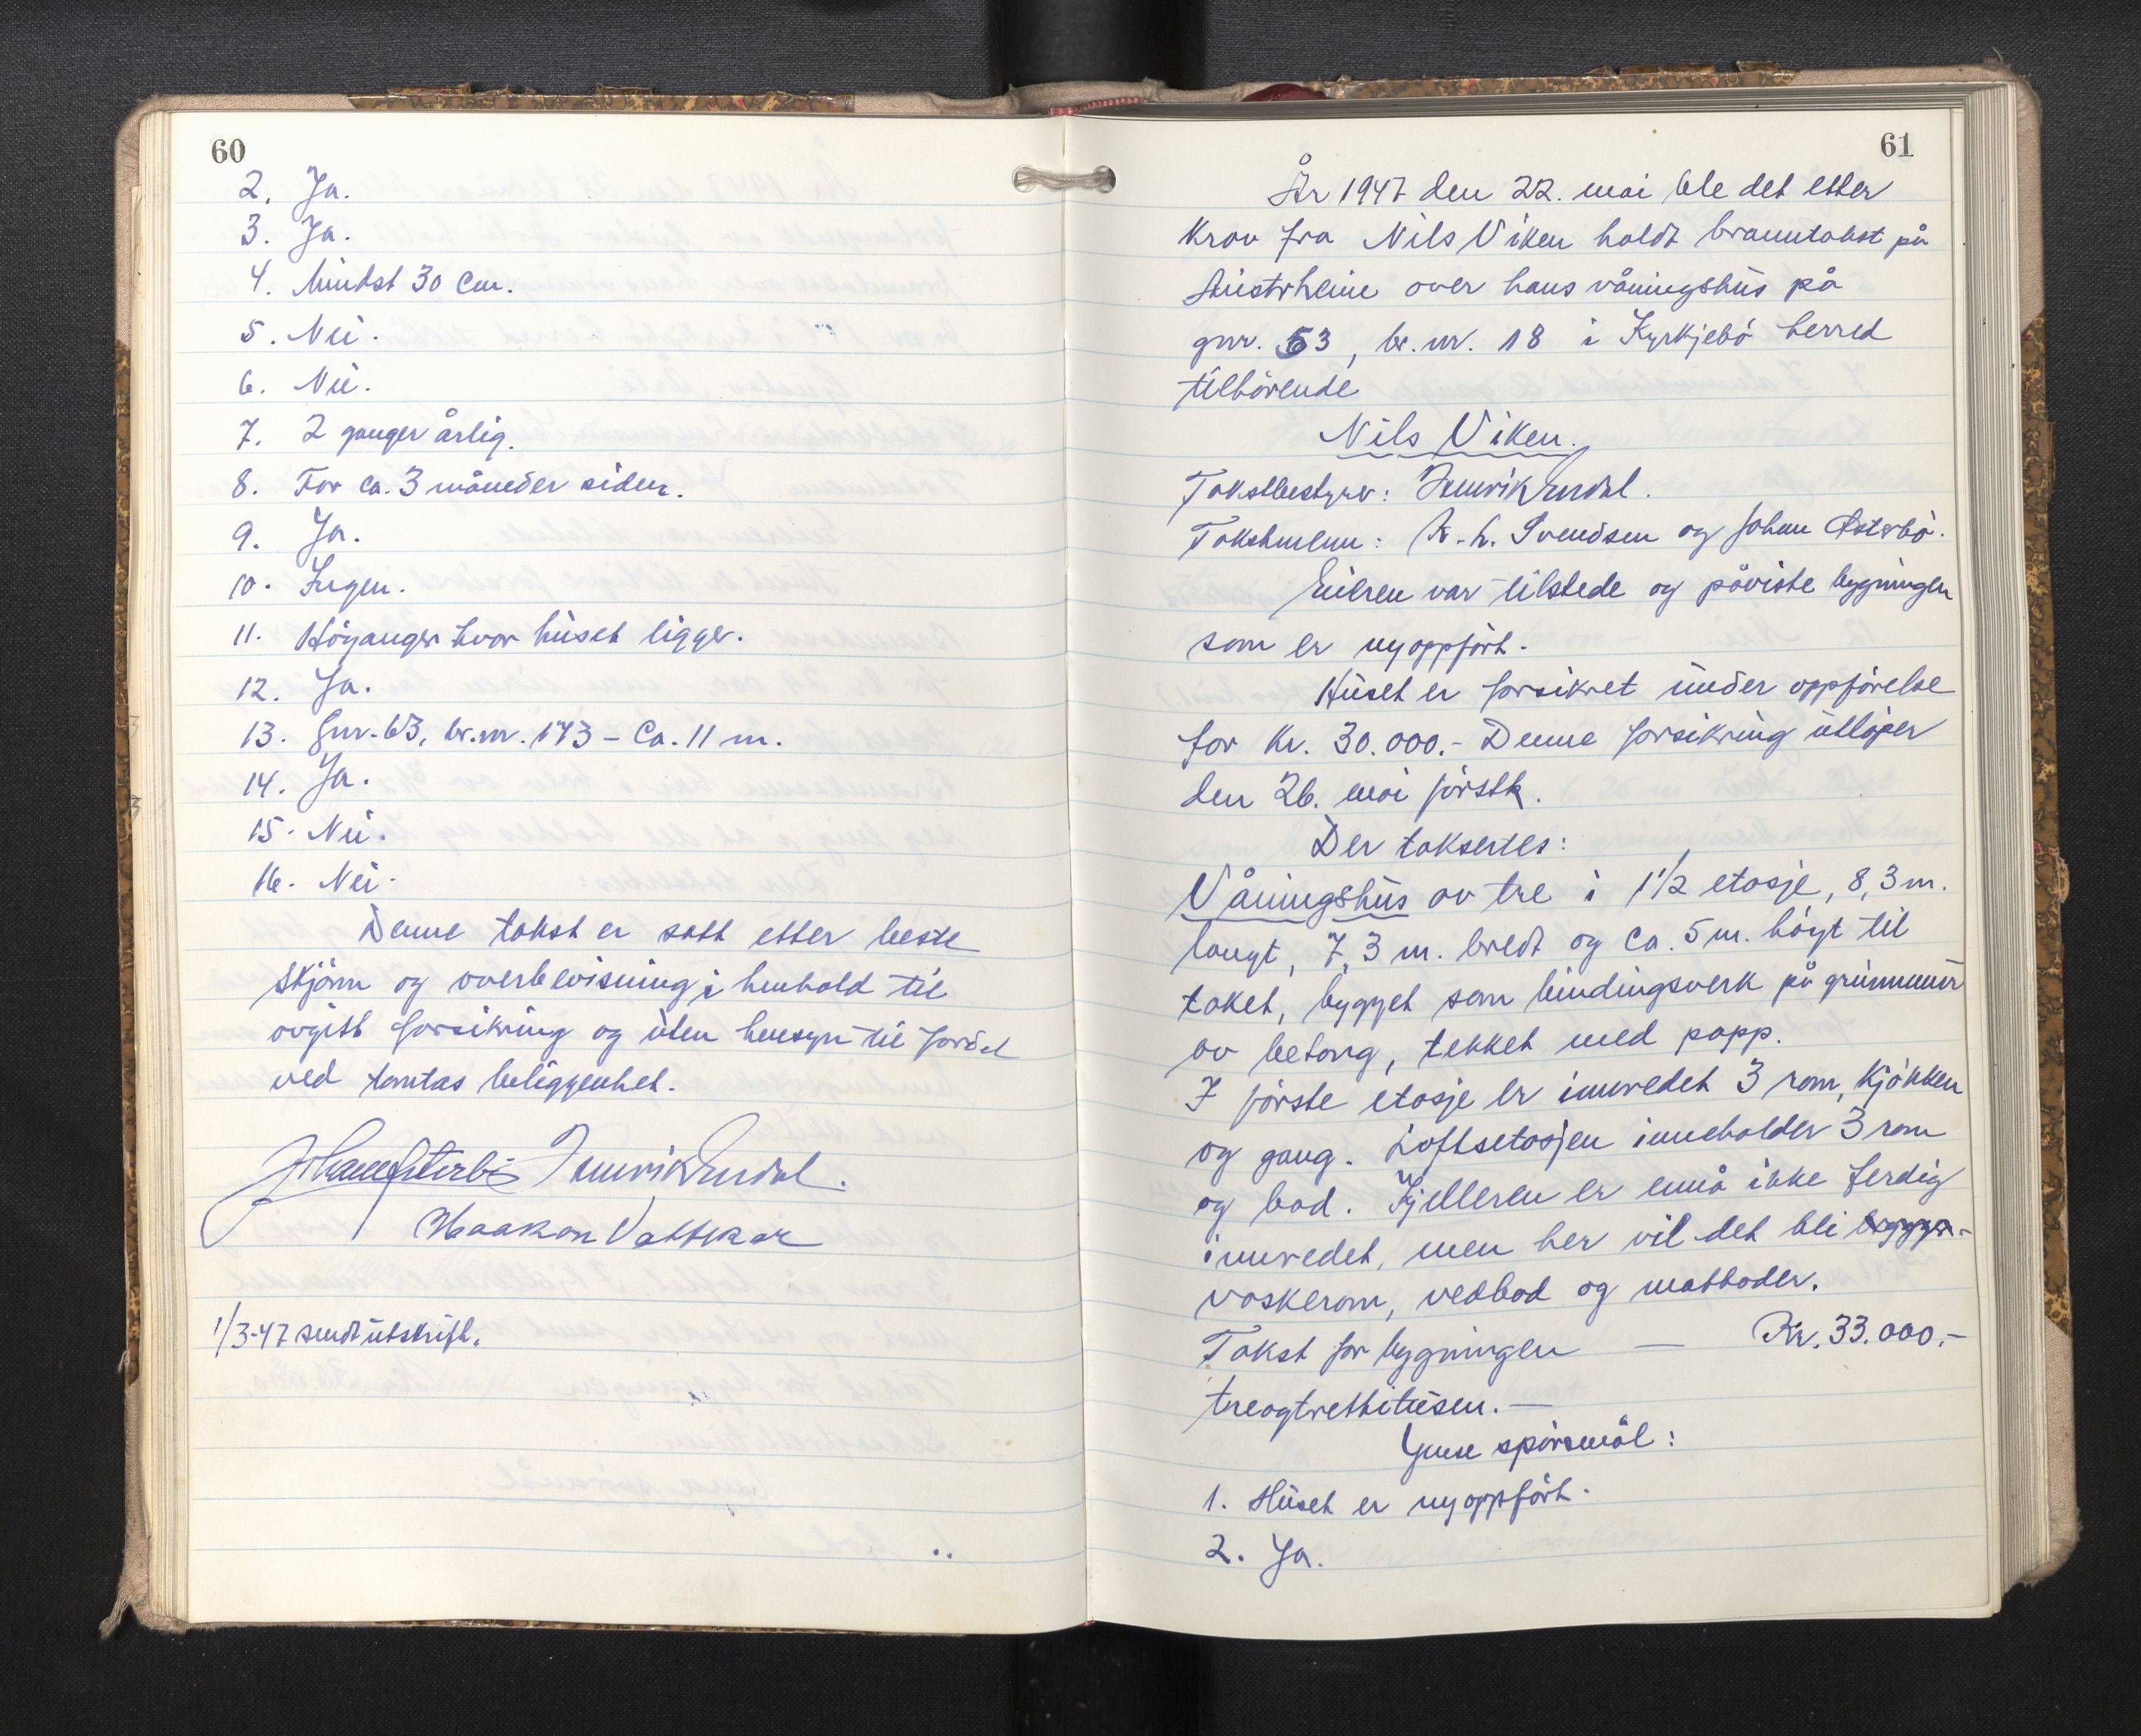 60
2. Ja.
3. Ja.
4. Mindst 30 cm.
5. Nei.
6. Nei.
7. 2 ganger årlig.
8. For ca. 3 måneder siden.
9. Ja.
10. Ingen.
11. Höyanger hvor huset ligger.
12. Ja.
13. Gnr. 63, br.nr. 173 - Ca. 11 m.
14. Ja.
15. Nei.
16. Nei.
Denne takst er satt etter beste
skjönn og overbevisning i henhold til
avgitt forsikring og uten hensyn til fordel
ved tomtas beliggenhet.
Johan Østerbö Henrik Erdal.
Haakon Vattekar
1/3-47 sendt utskrift.
61
År 1947 den 22. mai ble det etter
krav fra Nils Viken holdt branntakst på
Austrheim over hans våningshus på
gnr. 53, br.nr. 18 i Kyrkjebö herred
tilhörende
Nils Viken.
Takstbestyrer: Henrik Erdal.
Takstmenn: K. L. Svendsen og Johan Østerbö.
Eieren var tilstede og påviste bygningen
som er nyoppfört.
Huset er forsikret under oppförelse
for kr. 30.000.- Denne forsikring utlöper
den 26. mai förstk.
Der taksertes:
Våningshus av tre i 1 1/2 etasje, 8,3 m.
langt, 7,3 m. bredt og ca. 5 m. höyt til
taket, bygget som bindingsverk på grunnmur
av betong, tekket med papp.
I förste etasje er innredet 3 rom, kjökken
og gang. Loftsetasjen inneholder 3 rom
og bad. Kjelleren er ennå ikke ferdig
innredet, men her vil det bli brygge-
vaskerom, vedbod og matboder.
Takst for bygningen — Kr. 33.000.-
treogtrettitusen.—
Ymse spörsmål:
1. Huset er nyoppfört.
2. Ja.